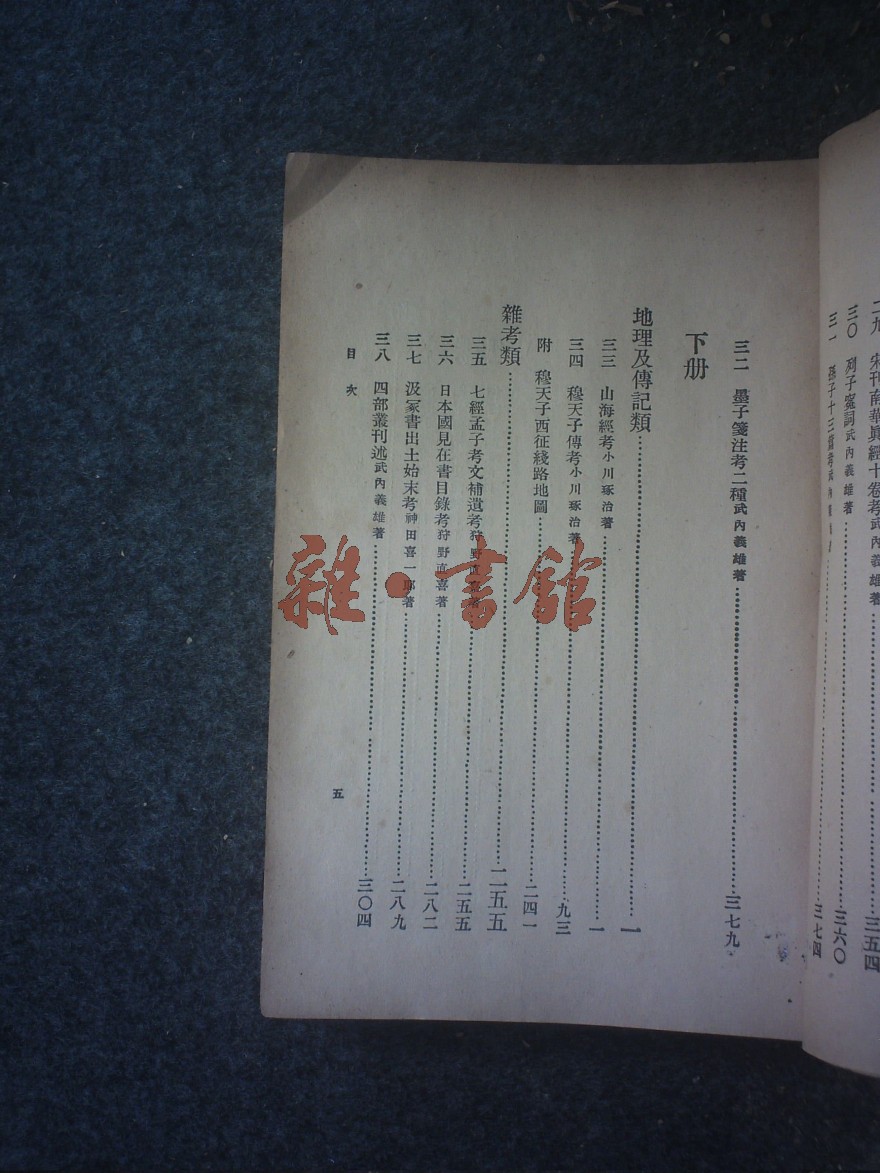 二九 宋刊南華眞經十卷考武內義雄著……三五四
三〇 列子寃詞武內義雄著……三六〇
三一 孫子十三篇考武內義雄著……三七四
三二 墨子箋注考二種武內義雄著……三七九
下册
地理及傳記類……一
三三 山海經考小川琢治著……一
三四 穆天子傳考小川琢治著……九三
附 穆天子西征綫路地圖……二四一
雜考類……二五五
三五 七經孟子考文補遺考狩野直喜著……二五五
三六 日本國見在書目錄考狩野直喜著……二八二
三七 汲冢書出土始末考神田喜一郎著……二八九
三八 四部叢刊述武內義雄著……三〇四
目次
五
雜·書館